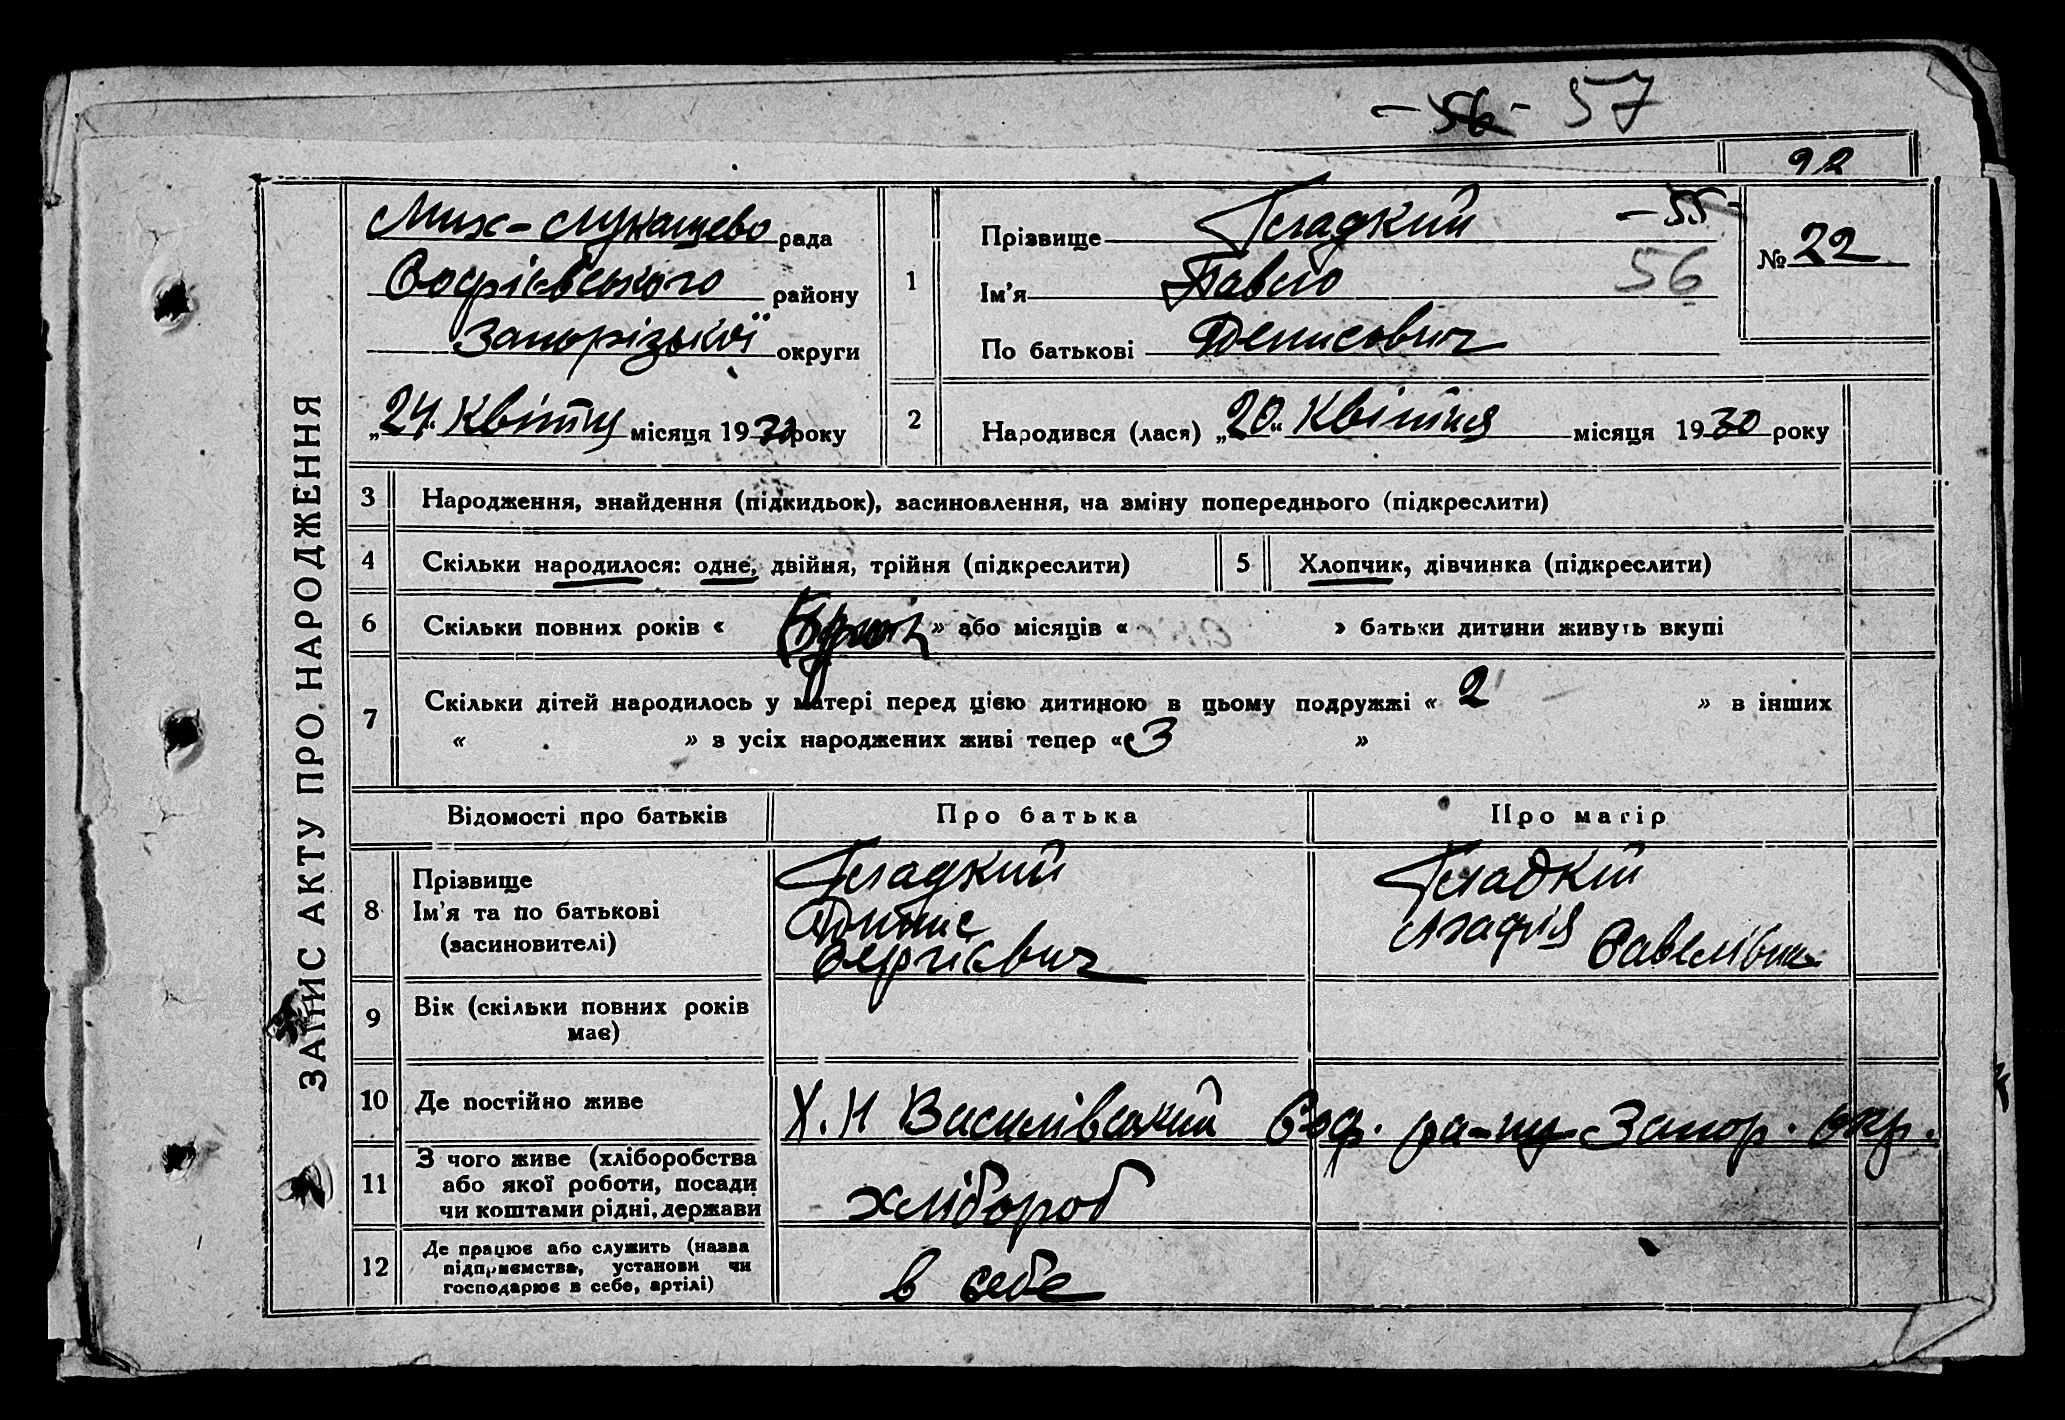 - 56 - 57
22
ЗАПИС АКТУ ПРО НАРОДЖЕННЯ
Мих-Лукашево рада
Софієвського району
Запорізької округи
„24“ Квітня місяця 1930 року
1
Прізвище Гладкий - 55 -
Ім'я Павло 56
По батькові Денисович
№ 22
2 Народився (лася) „20“ Квітня місяця 1930 року
3 Народження, знайдення (підкидьок), засиновлення, на зміну попереднього (підкреслити)
4 Скільки народилося: одне, двійня, трійня (підкреслити) 5 Хлопчик, дівчинка (підкреслити)
6 Скільки повних років « » або місяців « » батьки дитини живуть вкупі
7 Скільки дітей народилось у матері перед цією дитиною в цьому подружжі « 2 » в інших
« » з усіх народжених живі тепер « 3 »
Відомості про батьків Про батька Про матір
8
Прізвище
Ім'я та по батькові
(засиновителі)
Гладкий
Денис
Сергієвич
Гладкій
Агафія Савелівна
9 Вік (скільки повних років
має)
10 Де постійно живе Х. Н Василівський Соф. ра-ну Запор. окр.
11 З чого живе (хліборобства
або якої роботи, посади
чи коштами рідні, держави
хлібороб
12 Де працює або служить (назва
підприємства, установи чи
господарює в себе, артілі)
в себе